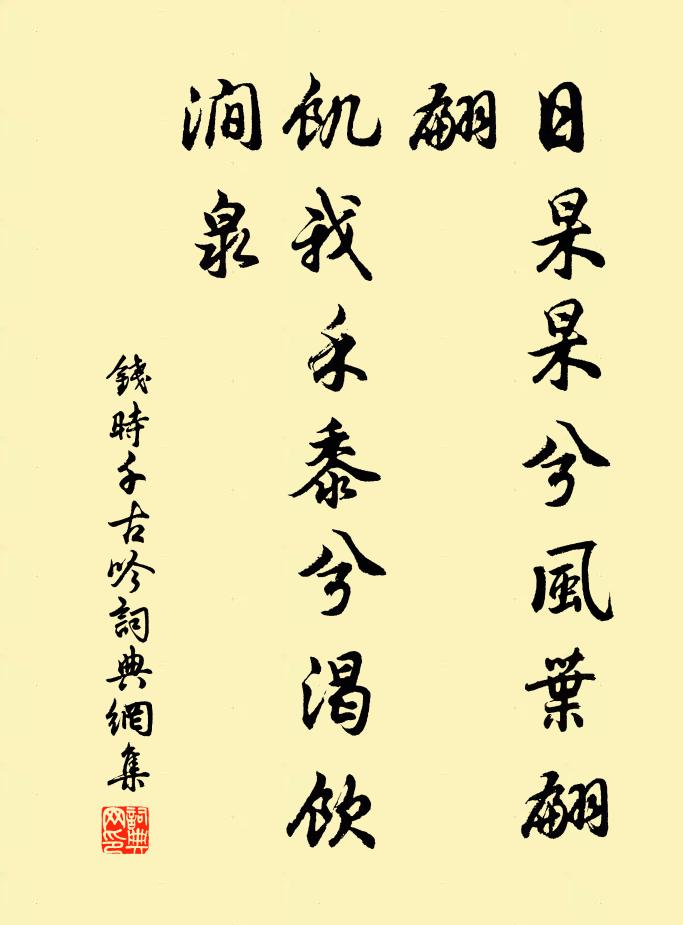 日杲杲兮風葉翩
翩
飢我禾黍兮渴飲
澗泉
錢時千古吟詞典網集
詞典
网印